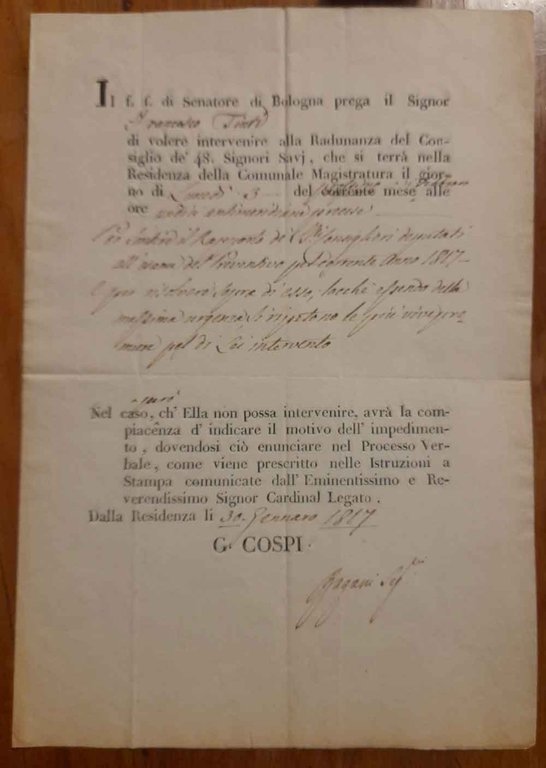 Il f. f. di Senatore di Bologna prega il Signor
Francesco
di volere intervenire alla Radunanza del Con-
siglio de' 48. Signori Savj, che si terrà nella
Residenza della Comunale Magistratura il gior-
no di Lunedì 3 del corrente mese alle
ore undici antimeridiane precise
Per sentire il Rapporto de' Consiglieri deputati
all'esame del Preventivo pel corrente Anno 1817
e per risolvere sopra di esso, locchè essendo della
massima urgenza si ripetono le più vive pre-
mure pel di Lei intervento
Nel caso, ch' Ella non possa intervenire, avrà la com-
piacenza d' indicare il motivo dell' impedimen-
to, dovendosi ciò enunciare nel Processo Ver-
bale, come viene prescritto nelle Istruzioni a
Stampa comunicate dall' Eminentissimo e Re-
verendissimo Signor Cardinal Legato.
Dalla Residenza li 30. Gennaro 1817
G. COSPI
Pagani